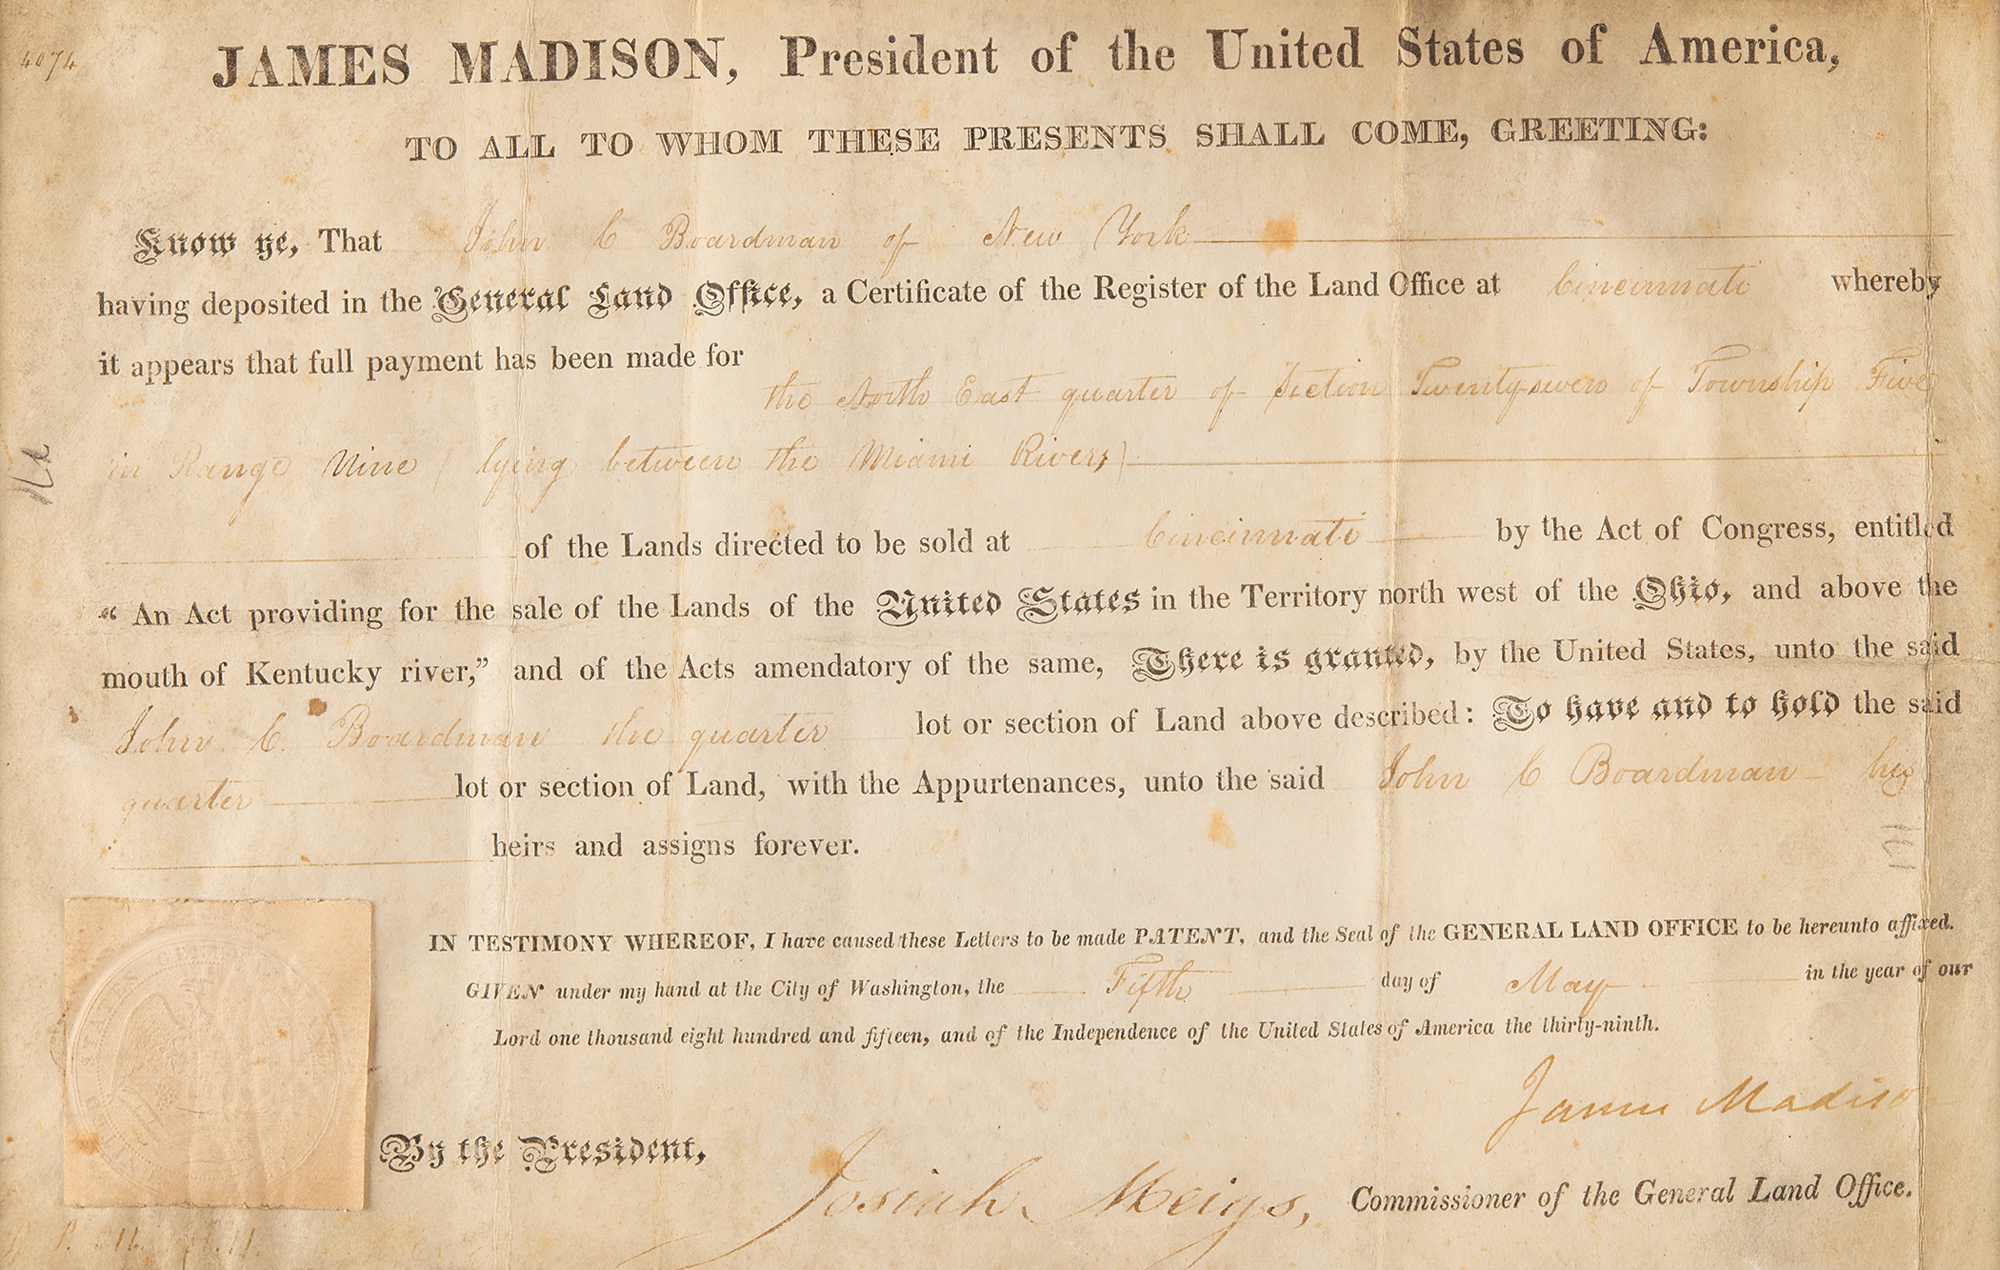 4074
JAMES MADISON, President of the United States of America,
TO ALL TO WHOM THESE PRESENTS SHALL COME, GREETING:
Know ye, That John C Boardman of New York
having deposited in the General Land Office, a Certificate of the Register of the Land Office at Cincinnati whereby
it appears that full payment has been made for
the North East quarter of Section Twenty-seven of Township Five
in Range Nine (lying between the Miami Rivers)
of the Lands directed to be sold at Cincinnati by the Act of Congress, entitled
“An Act providing for the sale of the Lands of the United States in the Territory north west of the Ohio, and above the
mouth of Kentucky river,” and of the Acts amendatory of the same, There is granted, by the United States, unto the said
John C. Boardman the quarter lot or section of Land above described: To have and to hold the said
quarter lot or section of Land, with the Appurtenances, unto the said John C Boardman his
heirs and assigns forever.
IN TESTIMONY WHEREOF, I have caused these Letters to be made PATENT, and the Seal of the GENERAL LAND OFFICE to be hereunto affixed.
GIVEN under my hand at the City of Washington, the Fifth day of May in the year of our
Lord one thousand eight hundred and fifteen, and of the Independence of the United States of America the thirty-ninth.
James Madison
By the President,
Josiah Meigs, Commissioner of the General Land Office.